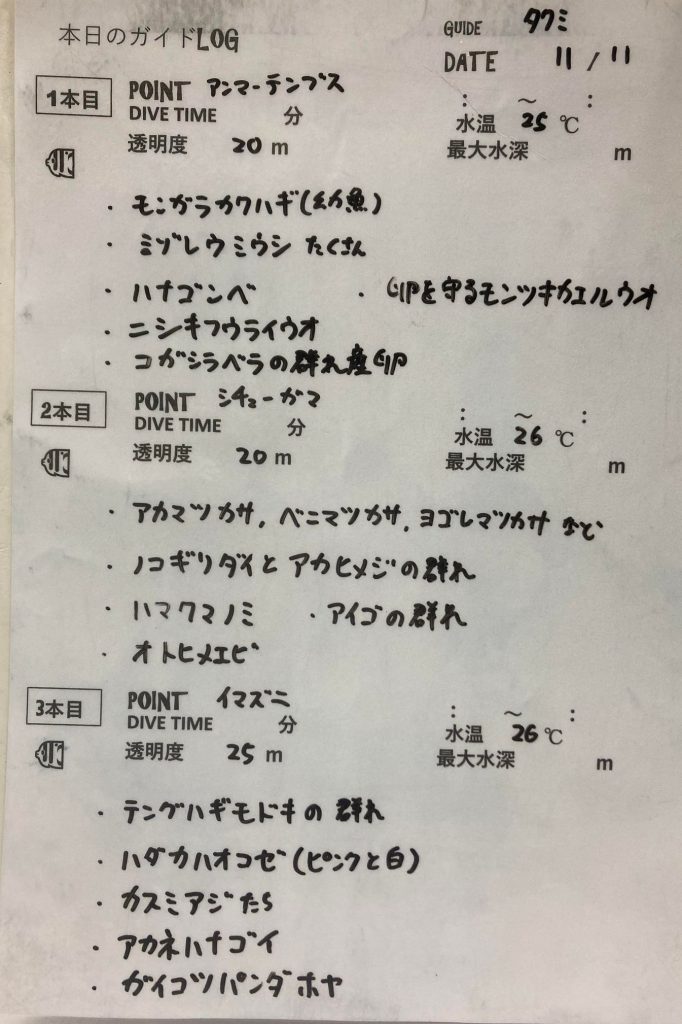 本日のガイドLOG
GUIDE タクミ
DATE 11 / 11
1本目 POINT アンマーテンブス
DIVE TIME 分 : ～ :
透明度 20 m 水温 25 ℃
最大水深 m
・モンガラカワハギ(幼魚)
・ミゾレウミウシ たくさん
・ハナゴンベ ・卵を守るモンツキカエルウオ
・ニシキフウライウオ
・コガシラベラの群れ産卵
2本目 POINT シチューガマ
DIVE TIME 分 : ～ :
透明度 20 m 水温 26 ℃
最大水深 m
・アカマツカサ, ベニマツカサ, ヨゴレマツカサ など
・ノコギリダイと アカヒメジの群れ
・ハマクマノミ ・アイゴの群れ
・オトヒメエビ
3本目 POINT イマズニ
DIVE TIME 分 : ～ :
透明度 25 m 水温 26 ℃
最大水深 m
・テングハギモドキの 群れ
・ハダカハオコゼ(ピンクと白)
・カスミアジたち
・アカネハナゴイ
・ガイコツパンダホヤ